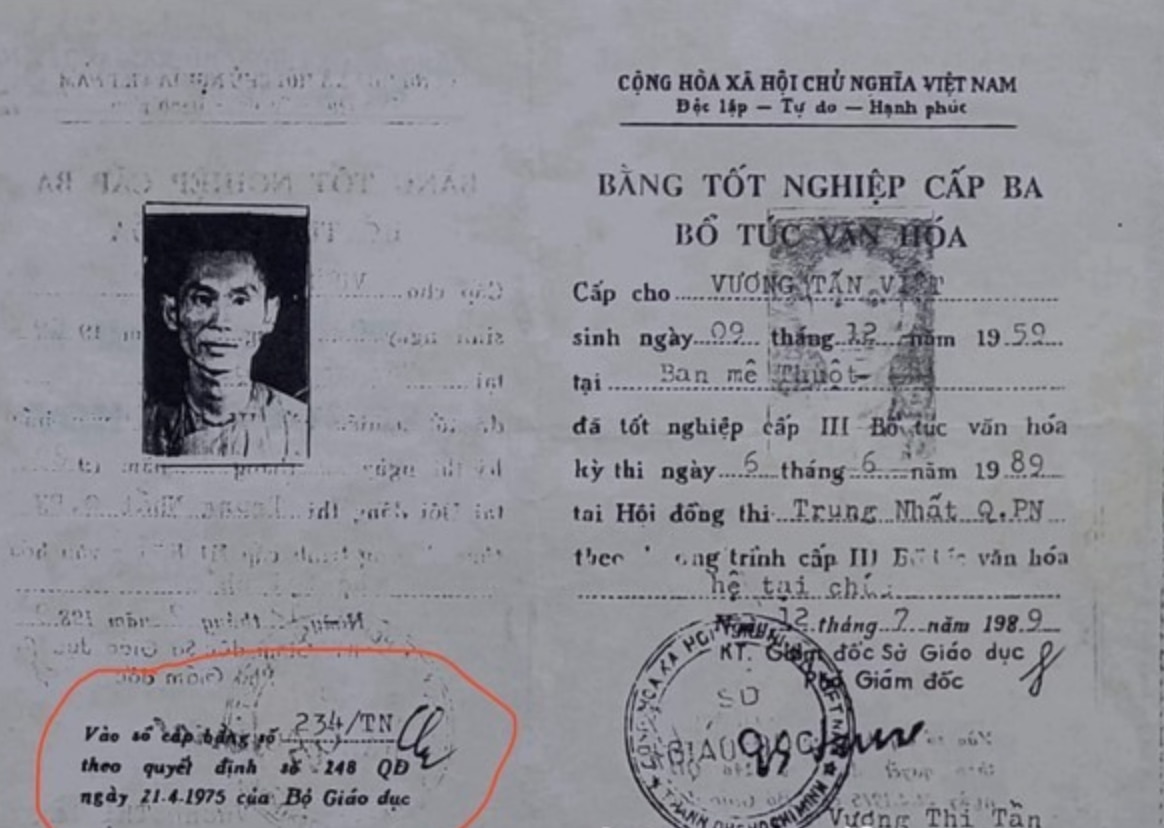 CỘNG HÒA XÃ HỘI CHỦ NGHĨA VIỆT NAM
Độc lập — Tự do — Hạnh phúc
BẰNG TỐT NGHIỆP CẤP BA
BỔ TÚC VĂN HÓA
Cấp cho VƯƠNG TẤN VIỆT
sinh ngày 09 tháng 12 năm 1959
tại Ban mê Thuột-
đã tốt nghiệp cấp III Bổ túc văn hóa
kỳ thi ngày 6 tháng 6 năm 1989
tại Hội đồng thi Trung Nhất Q.PN
trình cấp III văn hóa
hệ tại
12 tháng 7 năm 1989
KT. Giám đốc Sở Giáo dục
Phó Giám đốc
SỞ
GIÁO DỤC
Vương Thị Tần
Vào sổ cấp bằng số 234/TN
theo quyết định số 248 QĐ
ngày 21.4.1975 của Bộ Giáo dục